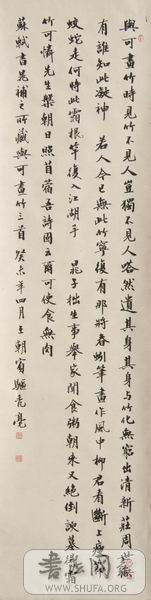 與可畫竹時見竹不見人豈獨不見人嗒然遺其身其身與竹化無窮出清新莊周世無
有誰知此凝神 若人今已無此竹寧復有那將春蚓筆畫作風中柳君看斷上瘦節
蛟蛇走何時此霜根竿復入江湖手 晁子拙生事舉家聞食粥朝來又絕倒諛墓得霜
竹可憐先生槃朝日照苜蓿吾詩固云爾可使食無肉
蘇軾書晁補之所藏與可畫竹三首 癸未年四月王朝賓驅禿毫